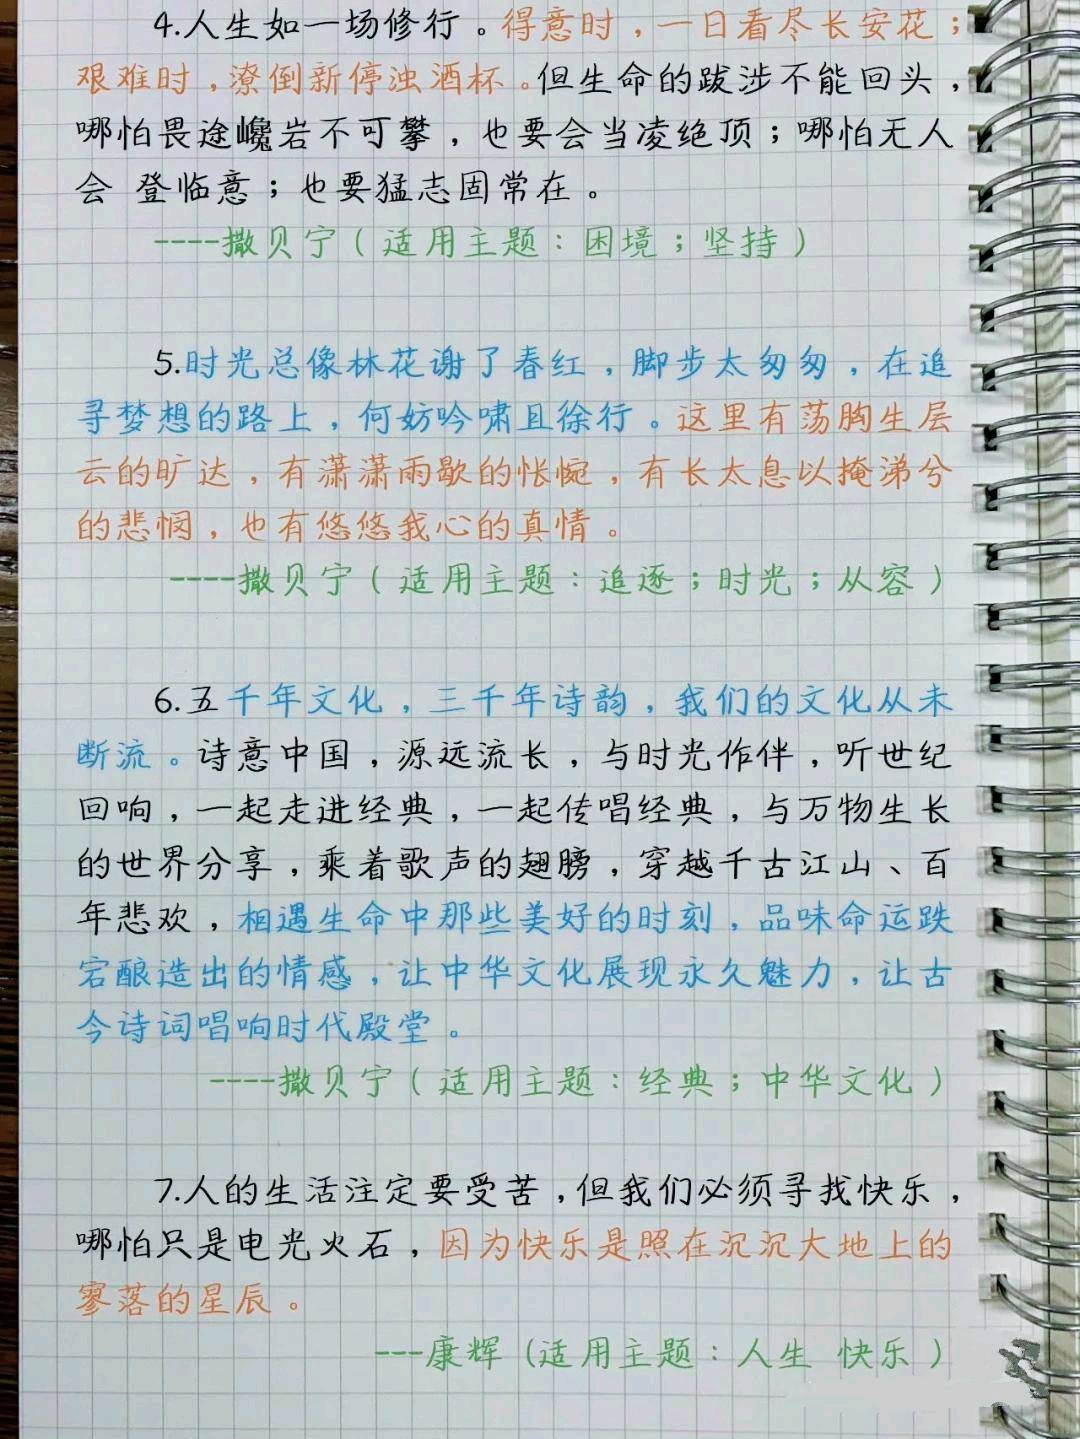 4.人生如一场修行。得意时，一日看尽长安花；
艰难时，潦倒新停浊酒杯。但生命的跋涉不能回头，
哪怕畏途巉岩不可攀，也要会当凌绝顶；哪怕无人
会 登临意；也要猛志固常在。
----撒贝宁（适用主题：困境；坚持）
5.时光总像林花谢了春红，脚步太匆匆，在追
寻梦想的路上，何妨吟啸且徐行。这里有荡胸生层
云的旷达，有潇潇雨歇的怅惋，有长太息以掩涕兮
的悲悯，也有悠悠我心的真情。
----撒贝宁（适用主题：追逐；时光；从容）
6.五千年文化，三千年诗韵，我们的文化从未
断流。诗意中国，源远流长，与时光作伴，听世纪
回响，一起走进经典，一起传唱经典，与万物生长
的世界分享，乘着歌声的翅膀，穿越千古江山、百
年悲欢，相遇生命中那些美好的时刻，品味命运跌
宕酿造出的情感，让中华文化展现永久魅力，让古
今诗词唱响时代殿堂。
----撒贝宁（适用主题：经典；中华文化）
7.人的生活注定要受苦，但我们必须寻找快乐，
哪怕只是电光火石，因为快乐是照在沉沉大地上的
寥落的星辰。
---康辉（适用主题：人生 快乐）